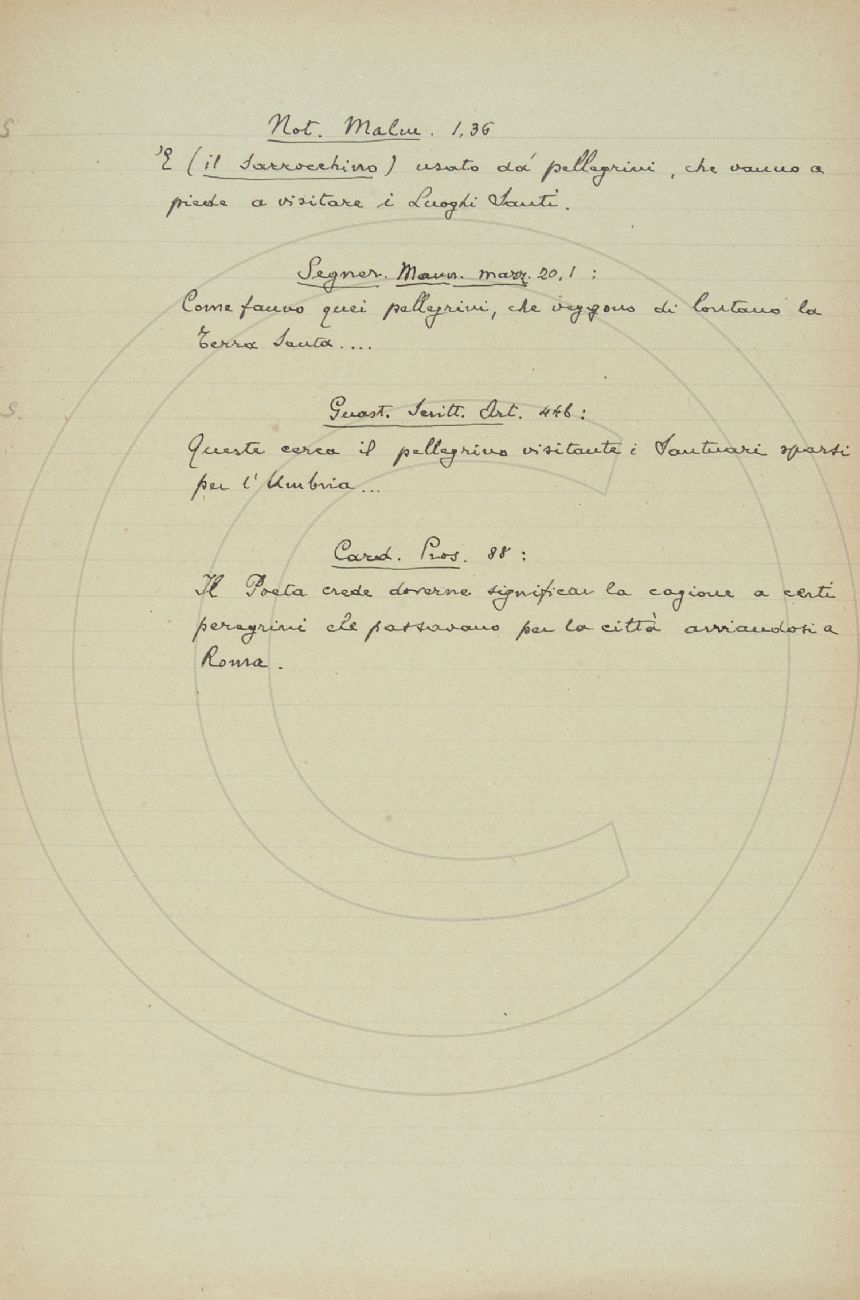 Not. Malm. 1,36
'E (il sarrocchino) usato da' pellegrini, che vanno a
piede a visitare i Luoghi Santi.
Segner. Mann. marz. 20,1 :
Come fanno quei pellegrini, che veggono di lontano la
Terra Santa....
Guast. Scritt. Art. 446 :
Queste cerca il pellegrino visitante i Santuari sparsi
per l'Umbria...
Card. Pros. 88 :
Il Poeta crede doverne significar la cagione a certi
peregrini che passavano per la città avviandosi a
Roma.